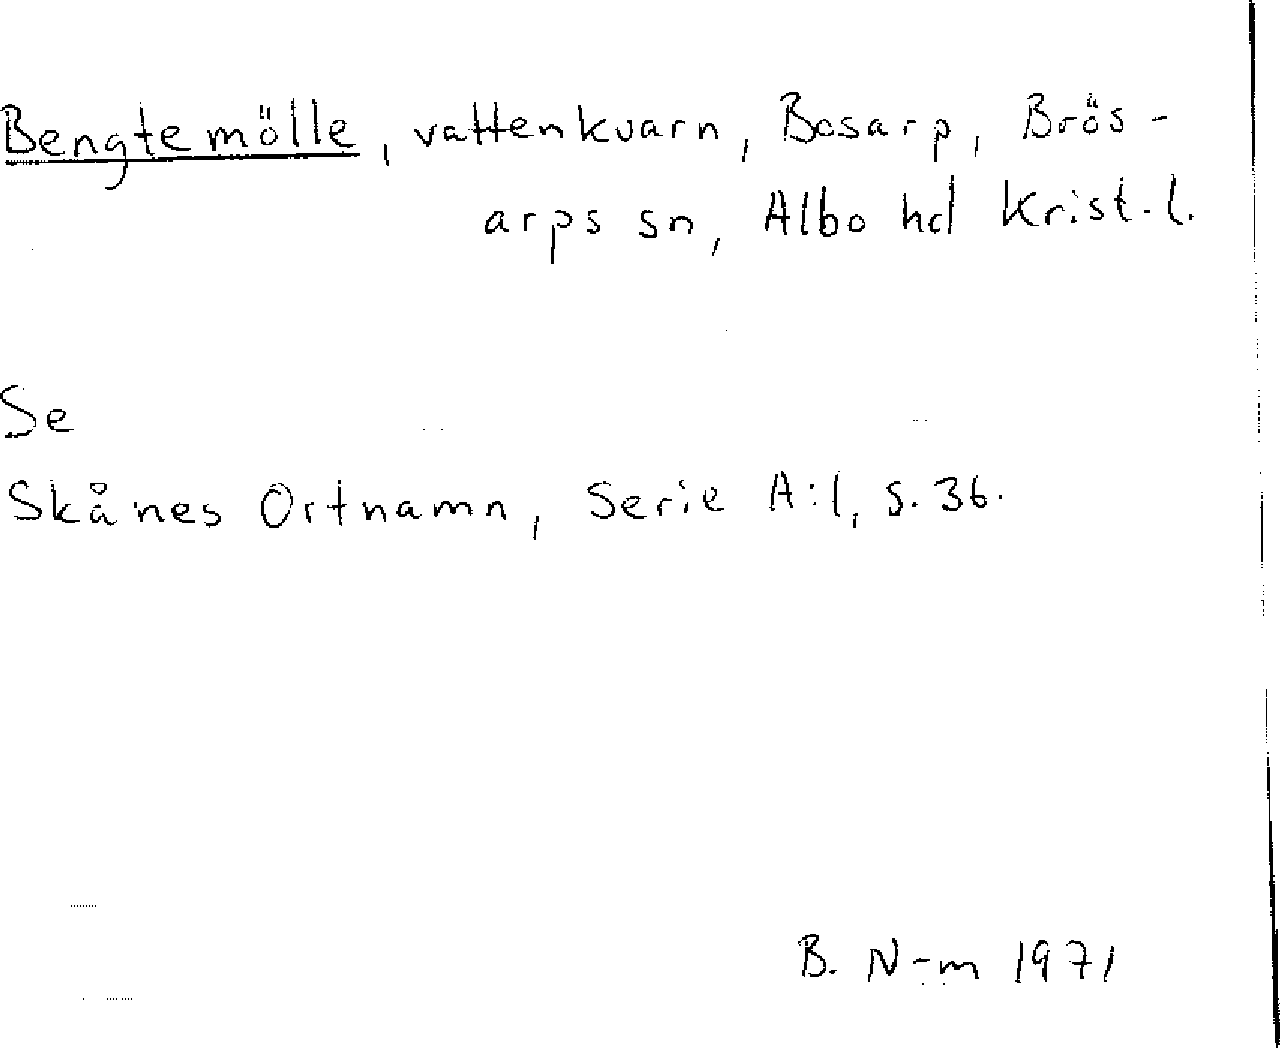 Bengtemölle, vattenkvarn, Bosarp, Brös-
arps sn, Albo hd Krist.l.
Se
Skånes Ortnamn, Serie A:1, s. 36.
B. N-m 1971